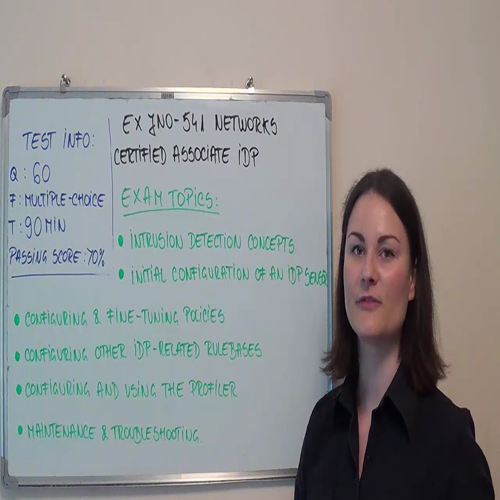 TEST INFO:
Q: 60
F: MULTIPLE-CHOICE
T: 90 MIN
PASSING SCORE: 70%
EX JN0-541 NETWORKS
CERTIFIED ASSOCIATE IDP
EXAM TOPICS:
• INTRUSION DETECTION CONCEPTS
• INITIAL CONFIGURATION OF AN IDP SENSOR
• CONFIGURING & FINE-TUNING POLICIES
• CONFIGURING OTHER IDP-RELATED RULEBASES
• CONFIGURING AND USING THE PROFILER
• MAINTENANCE & TROUBLESHOOTING